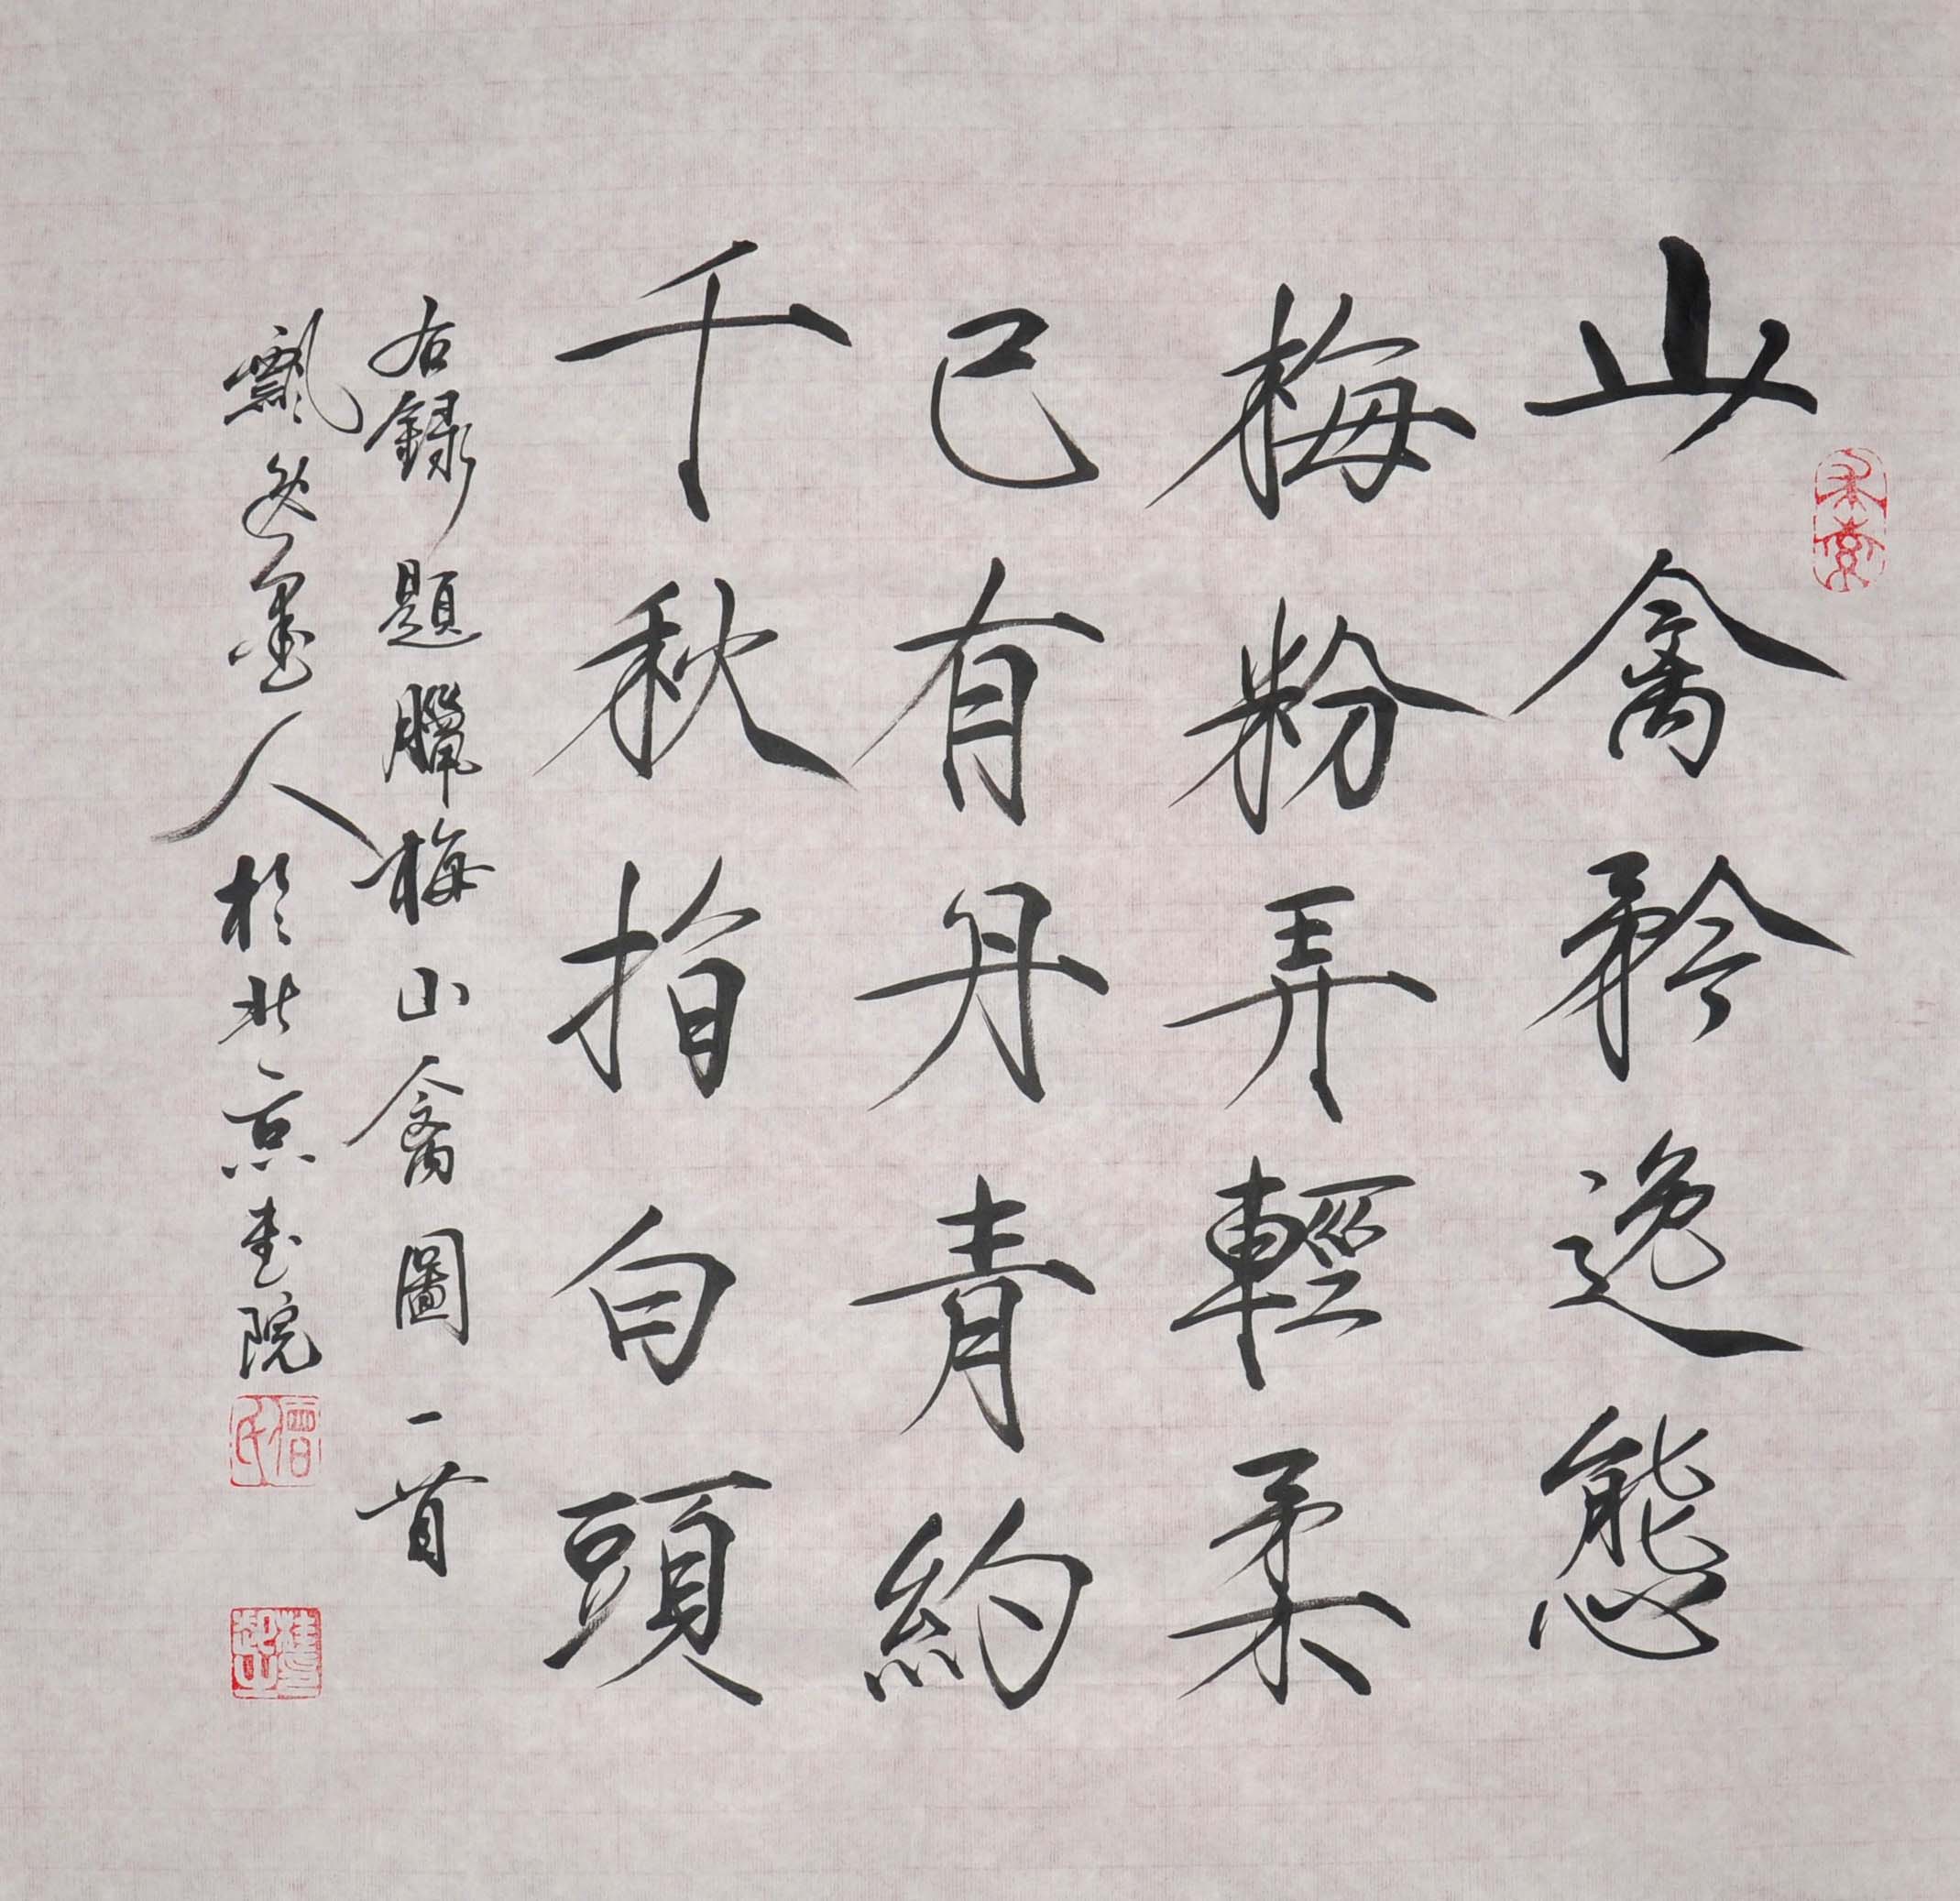 山禽矜逸態
梅粉弄輕柔
已有丹青約
千秋指白頭
右錄題臘梅山禽圖一首
飄逸墨人於北京畫院